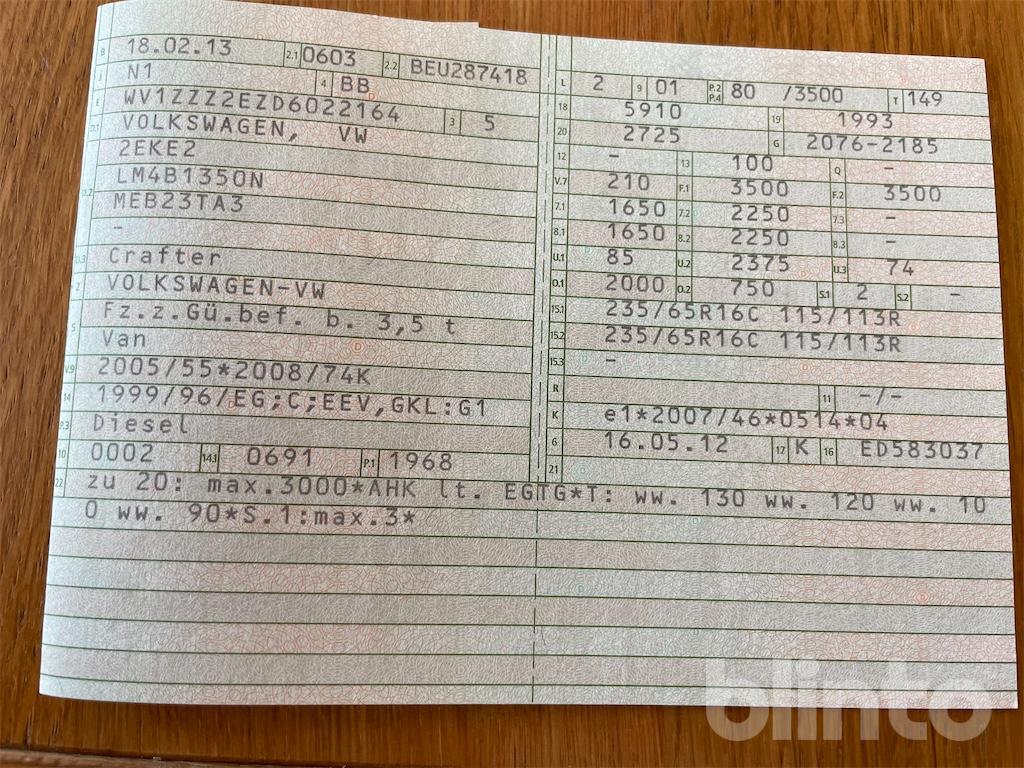 B 18.02.13 2.1 0603 2.2 BEU287418
J N1 4 BB
E WV1ZZZ2EZD6022164 3 5
D.1 VOLKSWAGEN, VW
2EKE2
D.2 LM4B1350N
MEB23TA3
-
D.3 Crafter
2 VOLKSWAGEN-VW
5 Fz.z.Gü.bef. b. 3,5 t
Van
V.9 2005/55*2008/74K
14 1999/96/EG;C;EEV,GKL:G1
P.3 Diesel
10 0002 14.1 0691 P.1 1968
L 2 9 01 P.2 P.4 80 /3500 T 149
18 5910 19 1993
20 2725 G 2076-2185
12 - 13 100 Q -
V.7 210 F.1 3500 F.2 3500
7.1 1650 7.2 2250 7.3 -
8.1 1650 8.2 2250 8.3 -
U.1 85 U.2 2375 U.3 74
O.1 2000 O.2 750 S.1 2 S.2 -
15.1 235/65R16C 115/113R
15.2 235/65R16C 115/113R
15.3 -
R 11 -/-
K e1*2007/46*0514*04
6 16.05.12 17 K 16 ED583037
21
22 zu 20: max.3000*AHK lt. EGTG*T: ww. 130 ww. 120 ww. 10
0 ww. 90*S.1:max.3*
blinto